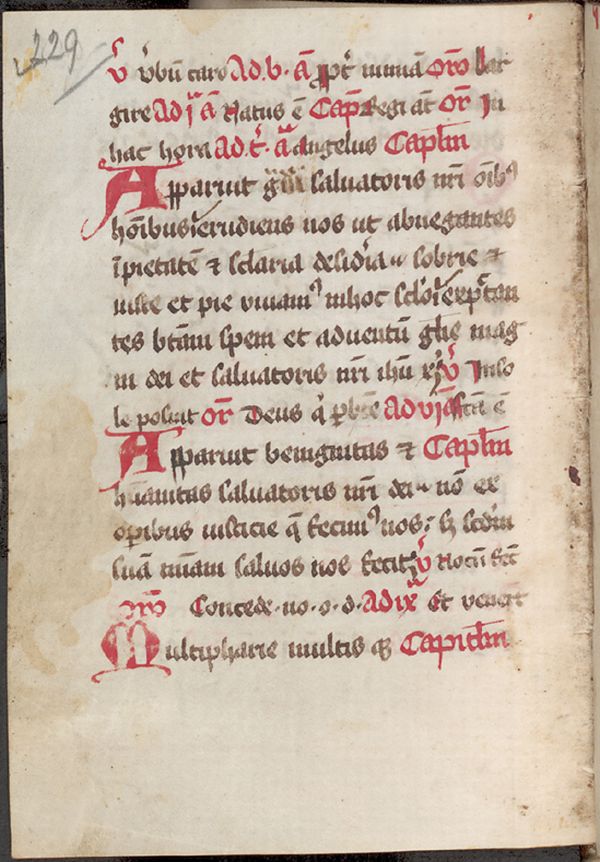 229
V̓ v̓bū caro Ad .v. ā ꝓpt̓ nimiā Orō lar
gire Ad j ā Natus ē Cap̄ Regi aūt Or̄ In
hac hora Ad t̓ ā angelus Caplm̄
Apparuit gr̄a salvatoris nr̄i oībꝰ
hoībus erudiens nos ut abnegantes
īpietatē ⁊ sclaria desid̓ia sobrie ⁊
iuste et pie vivamꝰ in hoc sclo expectan
tes btām spem et adventū gl̄ie mag
ni dei et salvatoris nr̄i ihū xp̄i V̓ In so
le posuit Or̄ Deus q̄ Ad vj ā
Apparuit benignitas ⁊ Caplm̄
hūanitas salvatoris nr̄i dei nō ex
oꝑibus iusticie q̄ fecimꝰ nos sꝫ scdm̄
suā miām salvos nos fecit V̓ Notū fec̄
Orō Concede .no.o.d. Ad ix Et venert̄
Multipharie multis qꝫ Capitlm̄